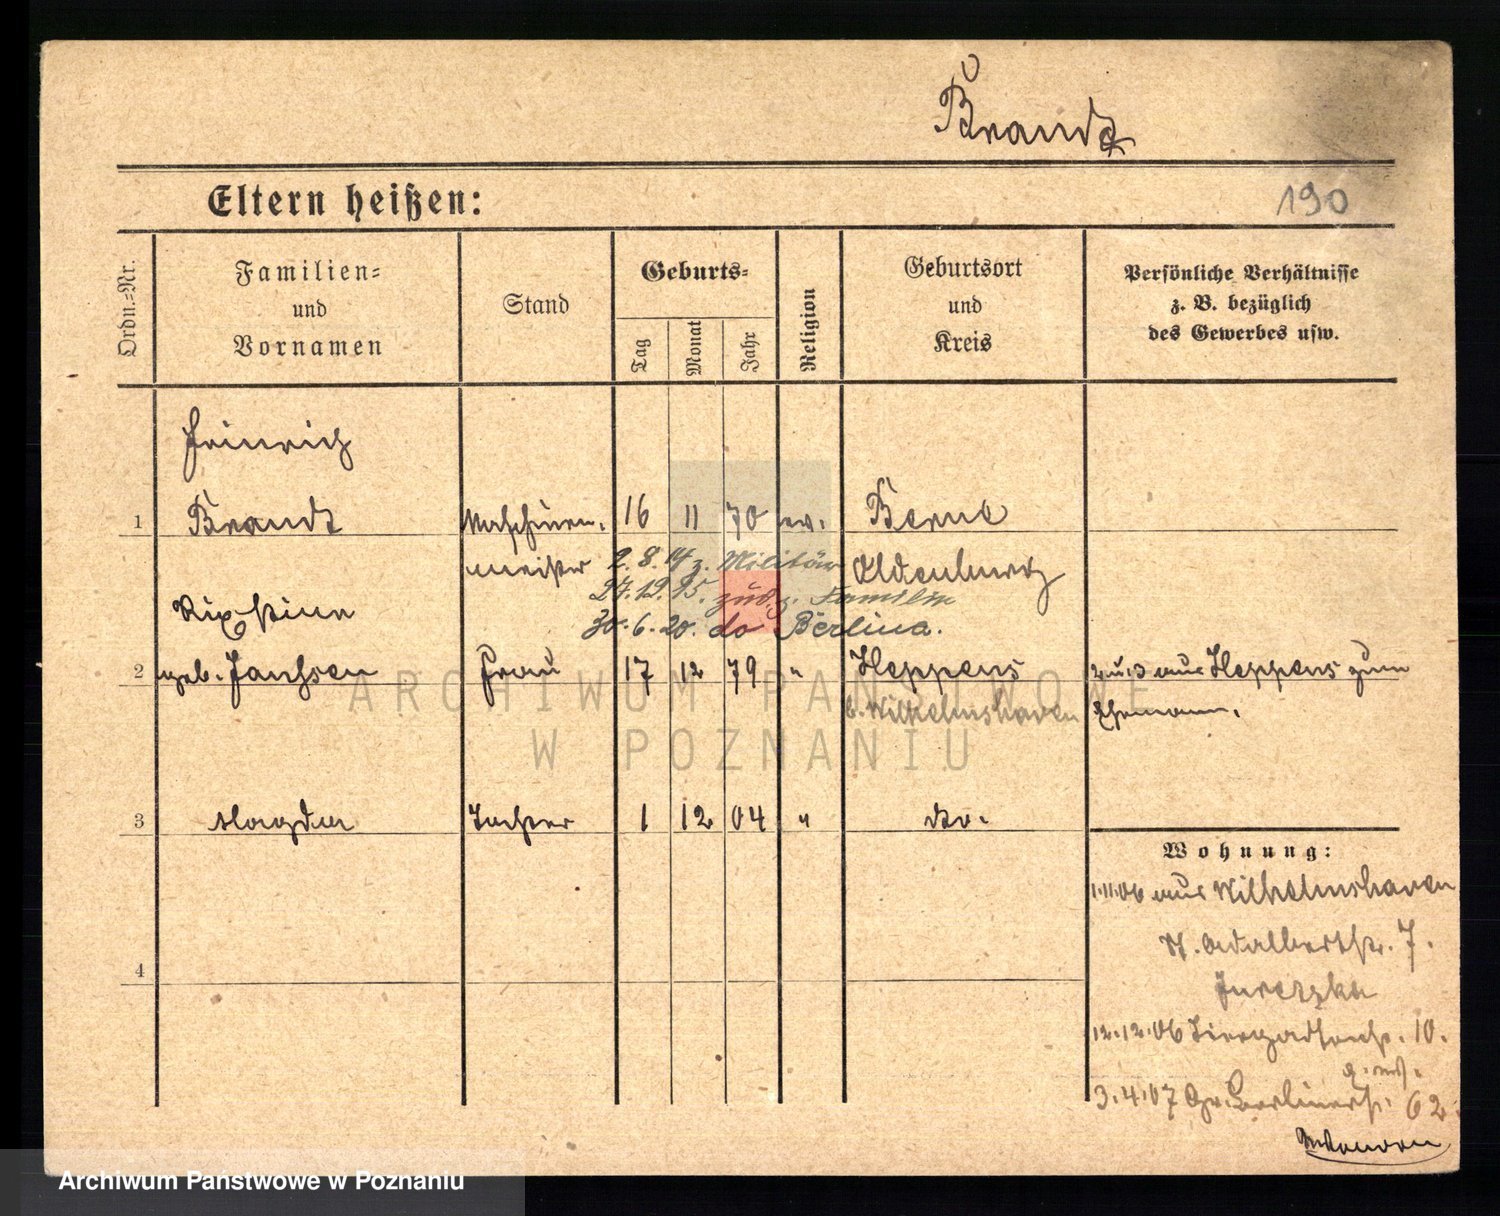 Brandt
Eltern heißen:
190
Ordn.=Nr.
Familien=
und
Vornamen
Stand
Geburts=
Tag
Monat
Jahr
Religion
Geburtsort
und
Kreis
Persönliche Verhältnisse
z. B. bezüglich
des Gewerbes usw.
Heinrich
1 Brandt Maschinen- 16 11 70 ev. Berne
meister 2.8.14 z. Militär Oldenburg
zur Familie
30.6.20. do Berlin
2 geb. Janssen Frau 17 12 79 " Heppens 2 u 3 aus Heppens zum
b. Wilhelmshaven Ehemann.
3 Magda Tochter 1 12 04 " do.
Wohnung:
1.11.06 aus Wilhelmshaven
St. Adalbertstr. 7.
Jureczka
4
12.12.06 Tiergartenstr. 10.
3.4.07 Gr. Berlinerstr. 62.
ARCHIWUM PAŃSTWOWE
W POZNANIU
Archiwum Państwowe w Poznaniu